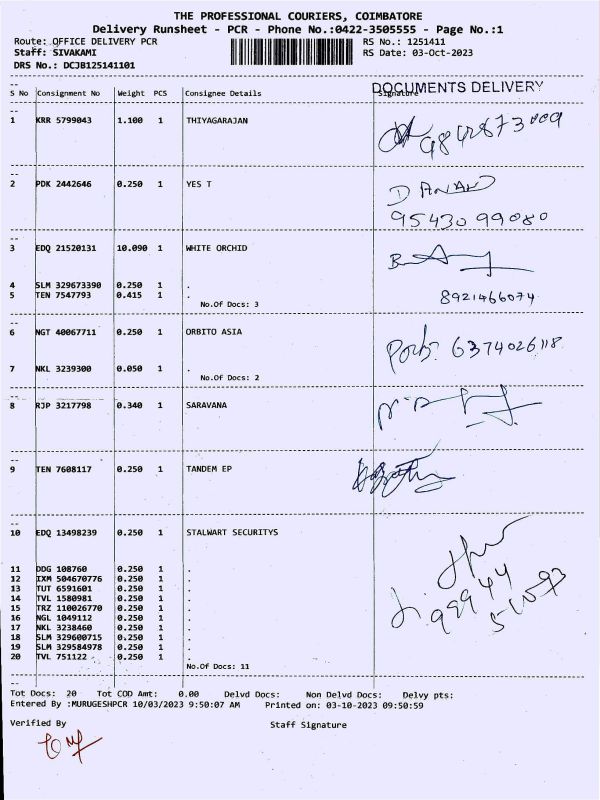 THE PROFESSIONAL COURIERS, COIMBATORE
Delivery Runsheet - PCR - Phone No.:0422-3505555 - Page No.:1
Route: OFFICE DELIVERY PCR RS No.: 1251411
Staff: SIVAKAMI RS Date: 03-Oct-2023
DRS No.: DCJB125141101
DOCUMENTS DELIVERY
S No Consignment No Weight PCS Consignee Details Signature
1 KRR 5799043 1.100 1 THIYAGARAJAN
2 PDK 2442646 0.250 1 YES T D ANAND
95430 99080
3 EDQ 21520131 10.090 1 WHITE ORCHID
4 SLM 329673390 0.250 1 .
5 TEN 7547793 0.415 1 . 8921466074
No.Of Docs: 3
6 NGT 40067711 0.250 1 ORBITO ASIA 6374026118
7 NKL 3239300 0.050 1 .
No.Of Docs: 2
8 RJP 3217798 0.340 1 SARAVANA
9 TEN 7608117 0.250 1 TANDEM EP
10 EDQ 13498239 0.250 1 STALWART SECURITYS
11 DDG 108760 0.250 1 .
12 IXM 504670776 0.250 1 .
13 TUT 6591601 0.250 1 .
14 TVL 1580981 0.250 1 .
15 TRZ 110026770 0.250 1 .
16 NGL 1049112 0.250 1 .
17 NKL 3238460 0.250 1 .
18 SLM 329600715 0.250 1 .
19 SLM 329584978 0.250 1 .
20 TVL 751122 0.250 1 .
No.Of Docs: 11
Tot Docs: 20 Tot COD Amt: 0.00 Delvd Docs: Non Delvd Docs: Delvy pts:
Entered By :MURUGESHPCR 10/03/2023 9:50:07 AM Printed on: 03-10-2023 09:50:59
Verified By Staff Signature